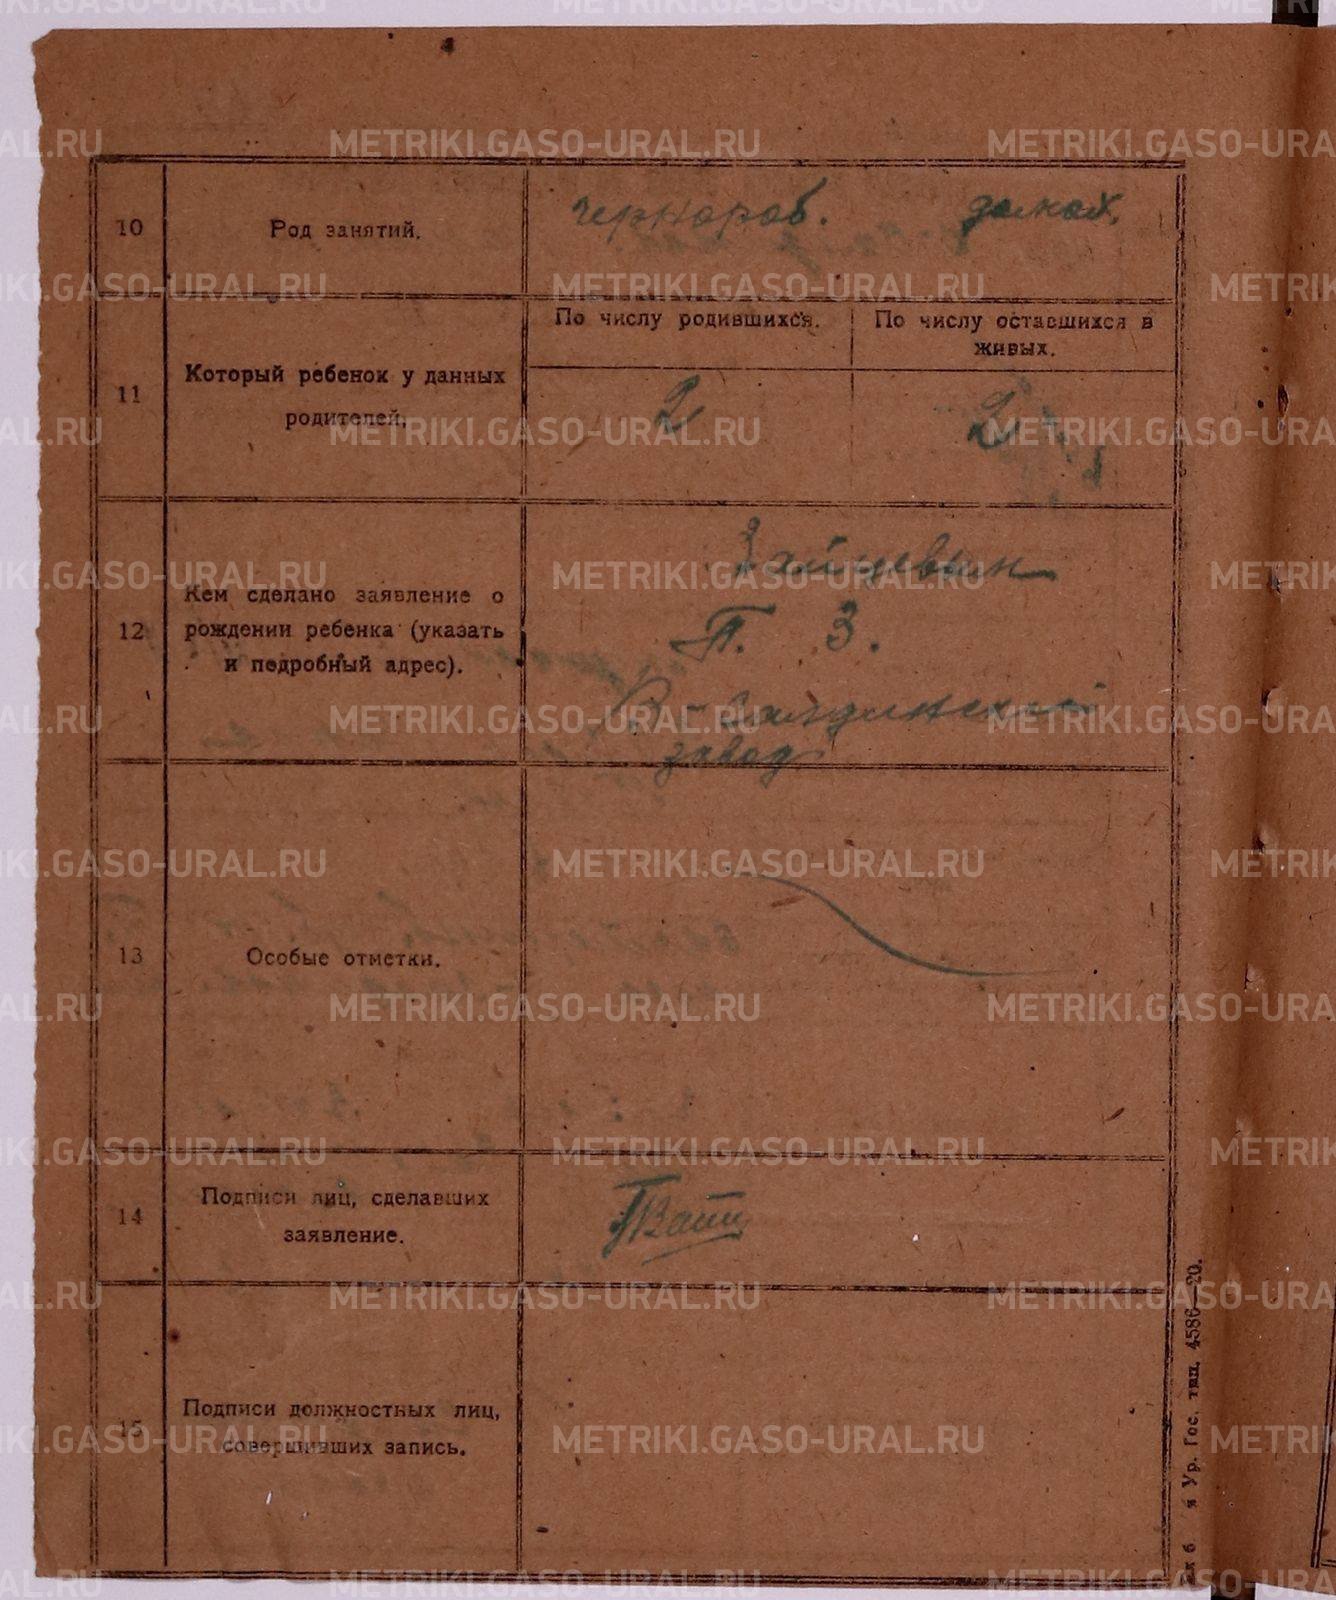 10
Род занятий.
чернораб. домох.
11
Который ребенок у данных
родителей.
По числу родившихся.
По числу оставшихся в
живых.
2
2
12
Кем сделано заявление о
рождении ребенка (указать
и подробный адрес).
Зайцевым
П. З.
В-Салдинский
завод
13
Особые отметки.
14
Подписи лиц, сделавших
заявление.
15
Подписи должностных лиц,
совершивших запись.
я Ур. Гос. тип. 4586—20.
METRIKI.GASO-URAL.RU